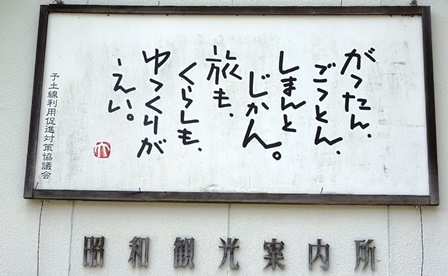 がったん、
ごっとん、
しまんと
じかん。
旅も、
くらしも、
ゆっくりが
、えい。
予土線利用促進対策協議会
昭和観光案内所